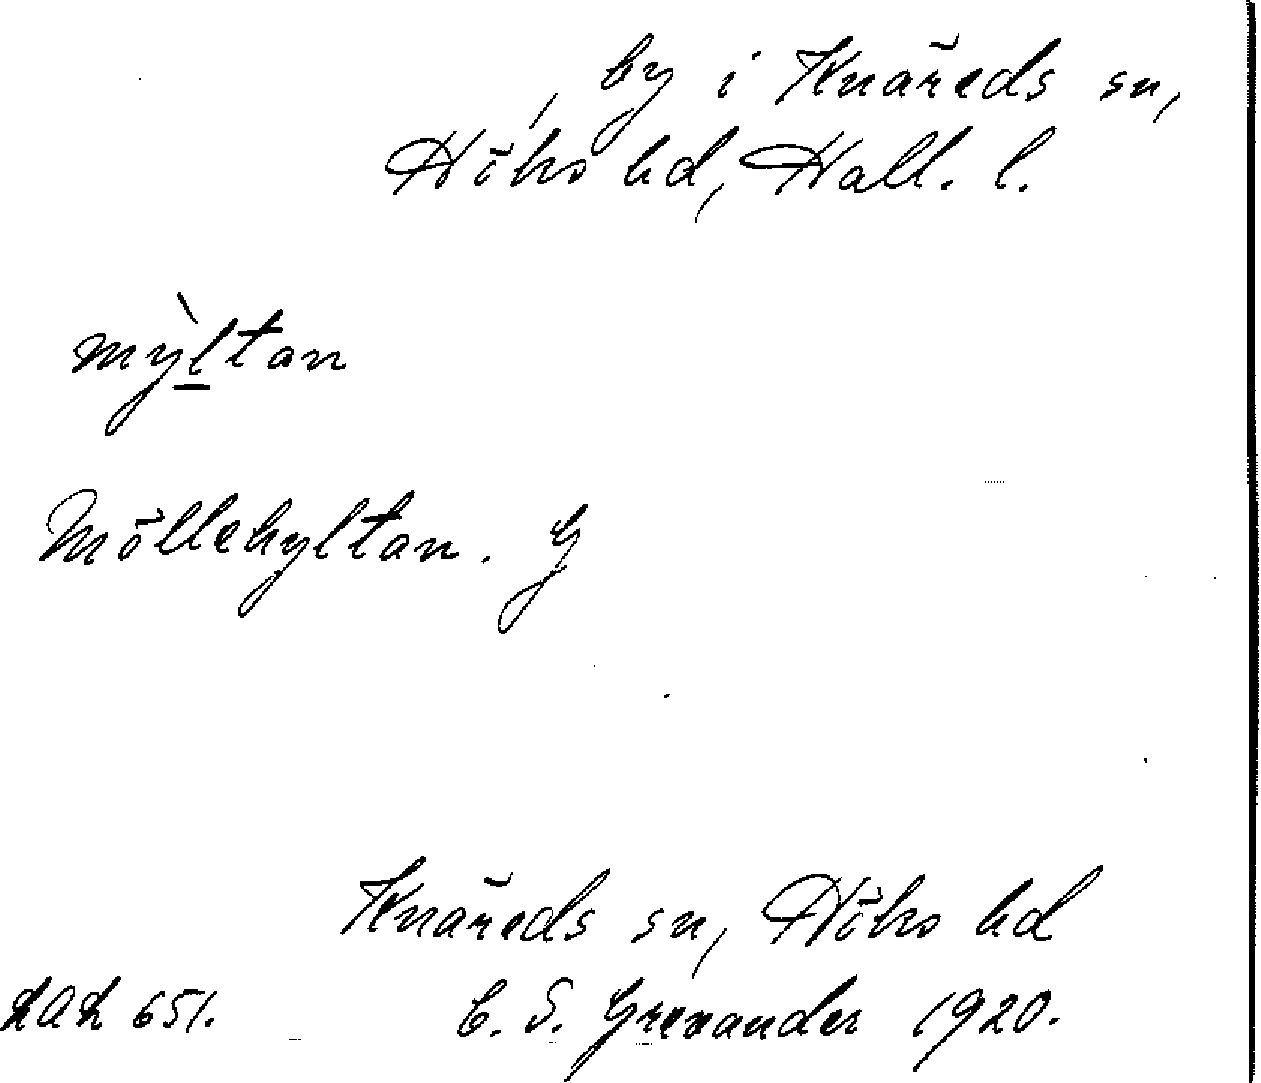 , by i Knäreds sn,
Höks hd, Hall. l.
mỳltan
Möllehyltan. G
Knäreds sn, Höks hd
LAL 651. C. S. Grenander 1920.